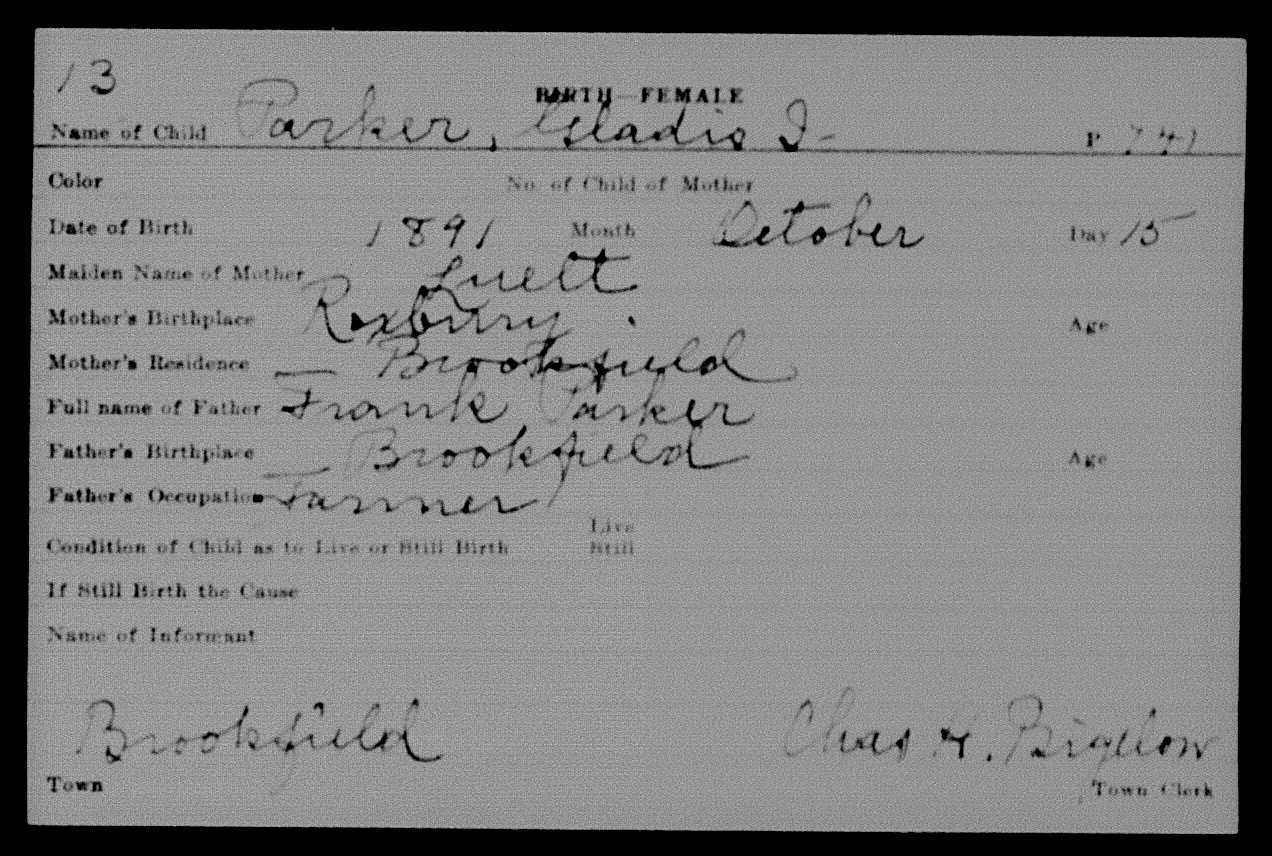 13
BIRTH—FEMALE
Name of Child Parker, Gladis I- P 741
Color No. of Child of Mother
Date of Birth 1891 Month October Day 15
Maiden Name of Mother Luett
Mother's Birthplace Roxbury. Age
Mother's Residence Brookfield
Full name of Father Frank Parker
Father's Birthplace Brookfield Age
Father's Occupation Farmer
Live
Condition of Child as to Live or Still Birth Still
If Still Birth the Cause
Name of Informant
Brookfield Chas H. Bigelow
Town Town Clerk